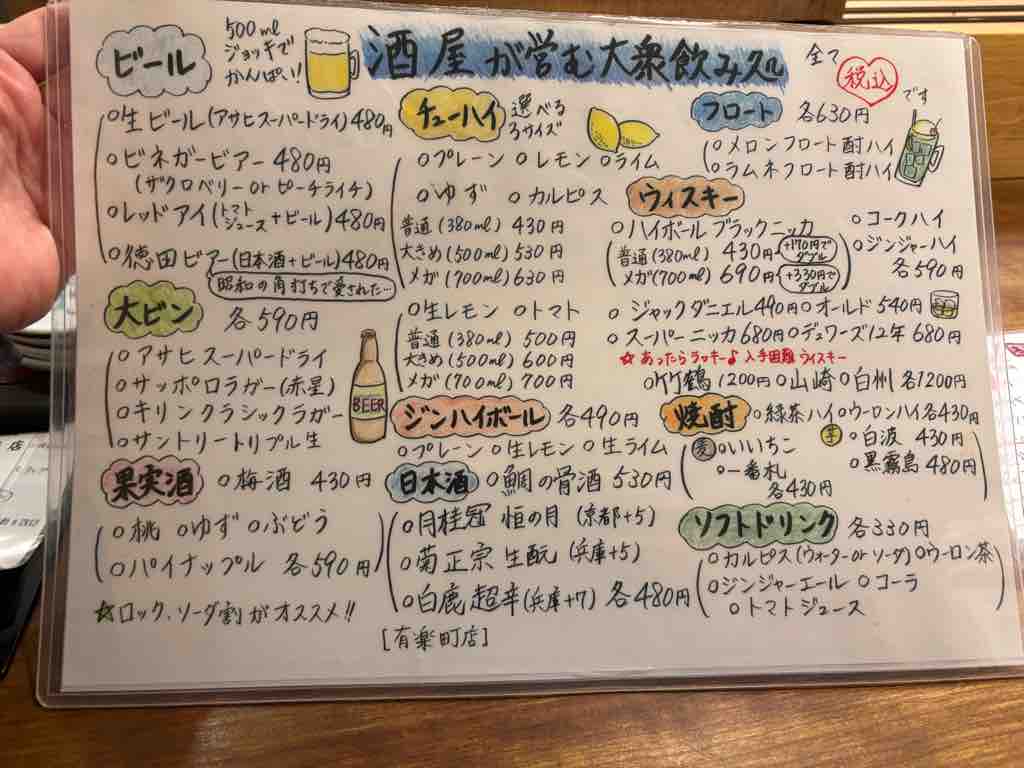 酒屋が営む大衆飲み処
全て
税込
です
ビール
500ml
ジョッキで
かんぱい!!
○生ビール(アサヒスーパードライ)480円
○ビネガービアー 480円
(ザクロベリー or ピーチライチ)
○レッドアイ(トマトジュース+ビール)480円
○徳田ビアー(日本酒+ビール)480円
昭和の角打ちで愛された…
大ビン 各590円
○アサヒスーパードライ
○サッポロラガー(赤星)
○キリンクラシックラガー
○サントリートリプル生
BEER
果実酒 ○梅酒 430円
○桃 ○ゆず ○ぶどう
○パイナップル 各590円
☆ロック、ソーダ割がオススメ!!
チューハイ 選べる
3サイズ
○プレーン ○レモン ○ライム
○ゆず ○カルピス
普通(380ml) 430円
大きめ(500ml) 530円
メガ(700ml) 630円
○生レモン ○トマト
普通(380ml) 500円
大きめ(500ml) 600円
メガ(700ml) 700円
ジンハイボール 各490円
○プレーン ○生レモン ○生ライム
日本酒 ○鯛の骨酒 530円
○月桂冠 恒の月 (京都+5)
○菊正宗 生酛 (兵庫+5)
○白鹿 超辛(兵庫+7) 各480円
[有楽町店]
フロート 各630円
○メロンフロート酎ハイ
○ラムネフロート酎ハイ
ウィスキー
○ハイボール ブラックニッカ
普通(380ml) 430円 +170円でダブル
メガ(700ml) 690円 +330円でダブル
○コークハイ
○ジンジャーハイ
各590円
○ジャックダニエル490円 ○オールド 540円
○スーパーニッカ680円 ○デュワーズ12年 680円
☆あったらラッキー♪入手困難ウィスキー
○竹鶴 1200円 ○山崎 ○白州 各1200円
焼酎 ○緑茶ハイ ○ウーロンハイ各430円
麦 ○いいちこ
○一番札
各430円
芋 ○白波 430円
○黒霧島 480円
ソフトドリンク 各330円
○カルピス(ウォーター or ソーダ) ○ウーロン茶
○ジンジャーエール ○コーラ
○トマトジュース
店